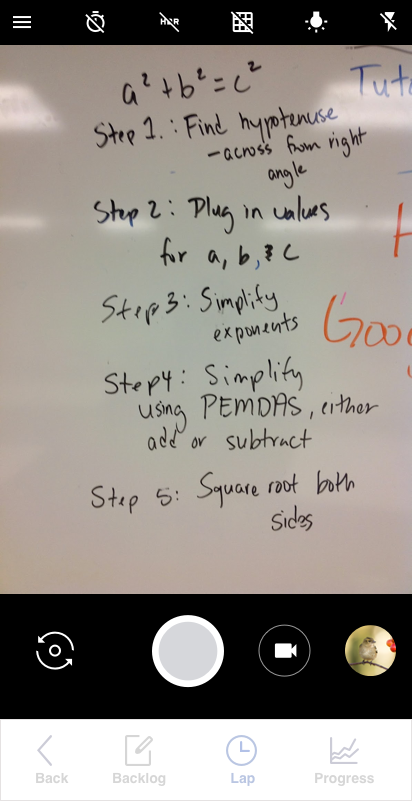 HDR
a² + b² = c²
Tut
Step 1.: Find hypotenuse
- across from right
angle
Step 2: Plug in values
for a, b, & c
H
Step 3: Simplify
exponents
Goo
Step4: Simplify
using PEMDAS, either
add or subtract
Step 5: Square root both
sides
Back Backlog Lap Progress